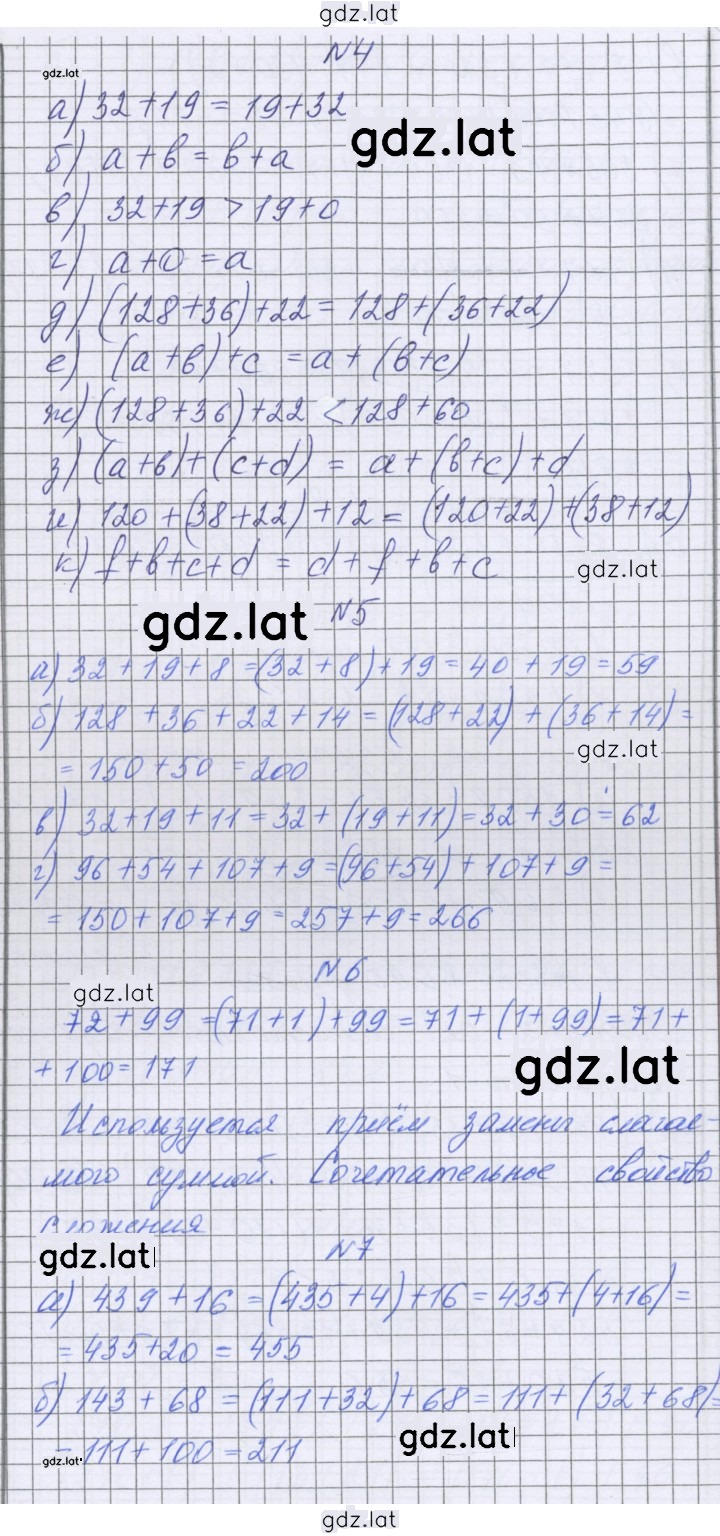 gdz.lat
№4
gdz.lat
а) 32+19 = 19+32
gdz.lat
б) a+b = b+a
в) 32+19 > 19+0
г) a+0 = a
д) (128+36)+22 = 128+(36+22)
е) (a+b)+c = a+(b+c)
ж) (128+36)+22 < 128+60
з) (a+b)+(c+d) = a+(b+c)+d
и) 120+(38+22)+12 = (120+22)+(38+12)
к) f+b+c+d = d+f+b+c
gdz.lat
gdz.lat
№5
а) 32+19+8 = (32+8)+19 = 40+19 = 59
б) 128+36+22+14 = (128+22)+(36+14) =
gdz.lat
= 150+50 = 200
в) 32+19+11 = 32+(19+11) = 32+30 = 62
г) 96+54+107+9 = (96+54)+107+9 =
= 150+107+9 = 257+9 = 266
№6
gdz.lat
72+99 = (71+1)+99 = 71+(1+99) = 71+
gdz.lat
+100 = 171
Используется приём замены слагае-
мого суммой. Сочетательное свойство
сложения
№7
gdz.lat
а) 439+16 = (435+4)+16 = 435+(4+16) =
= 435+20 = 455
б) 143+68 = (111+32)+68 = 111+(32+68) =
gdz.lat
= 111+100 = 211
gdz.lat
gdz.lat